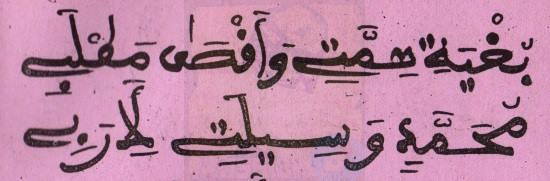 بُغْيَةِ هِمَّتِي وَأَقْصَى مَطْلَبِي
مُحَمَّدٍ وَسِيلَتِي لِأَرَبِي